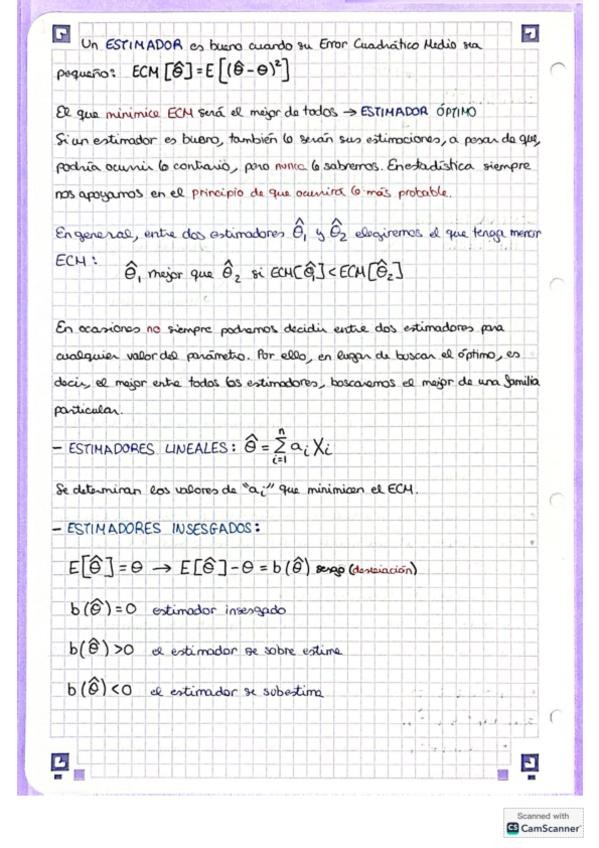 Un ESTIMADOR es bueno cuando su Error Cuadrático Medio sea
pequeño: ECM[θ̂] = E[(θ̂ - θ)²]
El que minimice ECM será el mejor de todos → ESTIMADOR ÓPTIMO
Si un estimador es bueno, también lo serán sus estimaciones, a pesar de que,
podría ocurrir lo contrario, pero nunca lo sabremos. En estadística siempre
nos apoyamos en el principio de que ocurrirá lo más probable.
En general, entre dos estimadores θ̂₁ y θ̂₂ elegiremos el que tenga menor
ECM:
θ̂₁ mejor que θ̂₂ si ECM[θ̂₁] < ECM[θ̂₂]
En ocasiones no siempre podremos decidir entre dos estimadores para
cualquier valor del parámetro. Por ello, en lugar de buscar el óptimo, es
decir, el mejor entre todos los estimadores, buscaremos el mejor de una familia
particular.
- ESTIMADORES LINEALES: θ̂ = Σⁿᵢ₌₁ aᵢ Xᵢ
Se determinan los valores de "aᵢ" que minimicen el ECM.
- ESTIMADORES INSESGADOS:
E[θ̂] = θ → E[θ̂] - θ = b(θ̂) sesgo (desviación)
b(θ̂) = 0 estimador insesgado
b(θ̂) > 0 el estimador se sobre estima
b(θ̂) < 0 el estimador se subestima
Scanned with
CS CamScanner